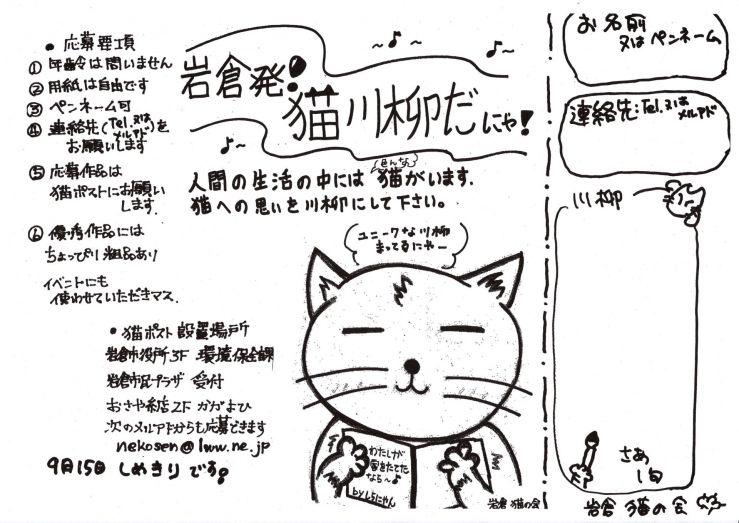 岩倉発!
猫川柳だにゃ!
人間の生活の中には 猫がいます.
猫への思いを川柳にして下さい。
ユニークな川柳
まってるにゃー
● 応募要項
① 年齢は問いません
② 用紙は自由です
③ ペンネーム可
④ 連絡先(Tel.又はメルアド)を
お願いします
⑤ 応募作品は
猫ポストにお願い
します.
⑥ 優秀作品には
ちょっぴり粗品あり
イベントにも
使わせていただきマス.
● 猫ポスト設置場所
岩倉市役所3F 環境保全課
岩倉市民プラザ 受付
おさや糸店2F
次のメルアドからも応募できます
nekosen@lww.ne.jp
9月15日 しめきりです。
わたしが
なら~♪
by しらにゃん
岩倉 猫の会
お名前
又はペンネーム
連絡先:Tel.又は
メルアド
川柳
さあ
1句
岩倉 猫の会